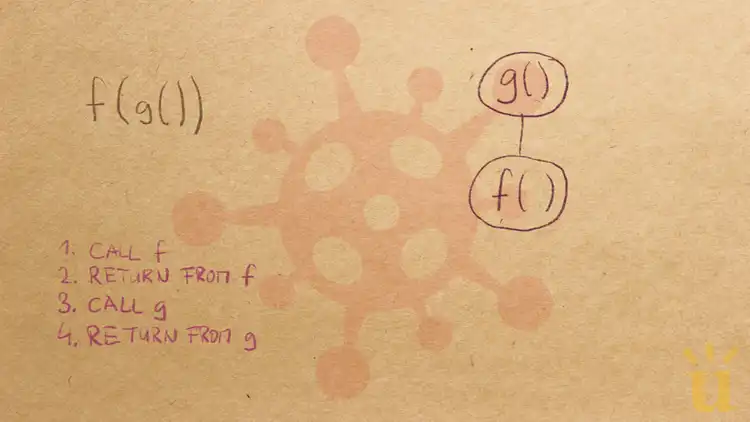 f(g())
g()
f( )
1. CALL f
2. RETURN FROM f
3. CALL g
4. RETURN FROM g
u